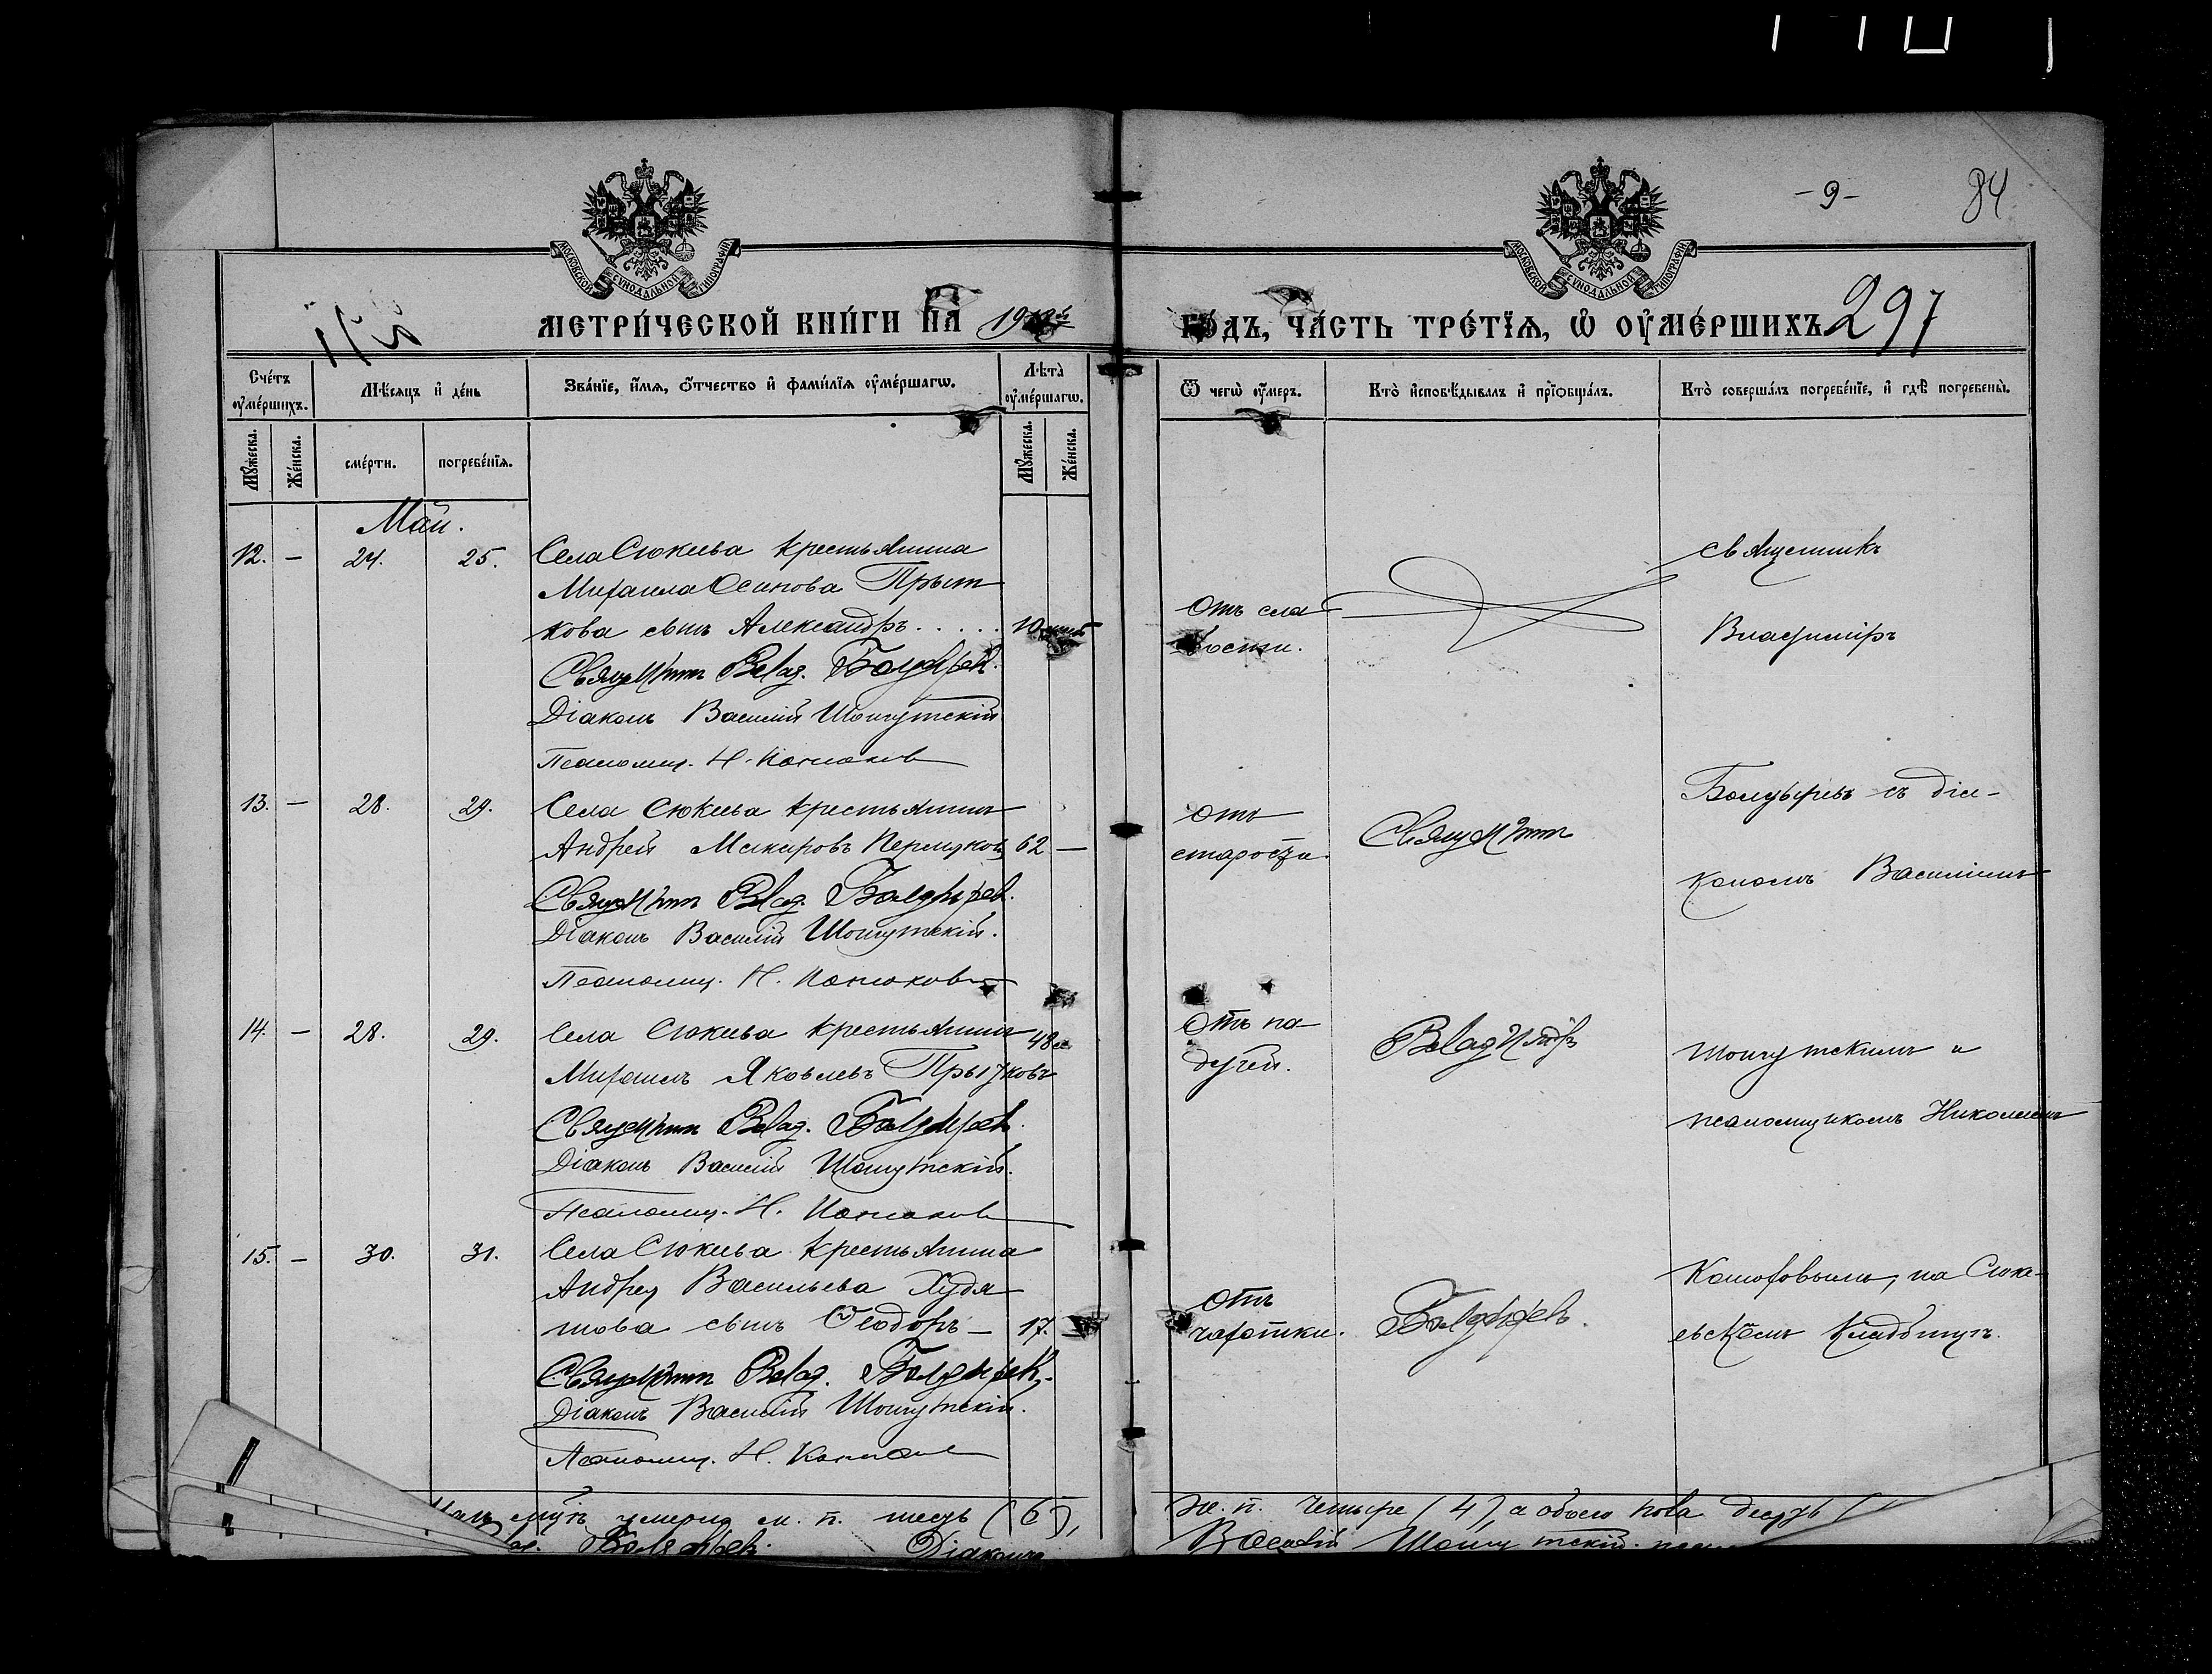 - 9 -
84
МОСКОВСКОЙ СѴНОДАЛЬНОЙ ТИПОГРАФІИ
МОСКОВСКОЙ СѴНОДАЛЬНОЙ ТИПОГРАФІИ
МЕТРИ́ЧЕСКОЙ КНИ́ГИ НА 19
ГО́ДЪ, ЧА́СТЬ ТРЕ́ТІѦ, Ѽ ОУ҆МЕ́РШИХЪ 297
Сче́тъ оу҆ме́ршихъ.
Мѣ́сяцъ и҆ де́нь
Зва́нїе, и҆́мѧ, ѻ҆́тчество и҆ фами́лїѧ оу҆ме́ршагѡ.
Лѣ́та̀ оу҆ме́ршагѡ.
Ѿ чегѡ̀ оу҆́меръ.
Кто̀ и҆сповѣ́дывалъ и҆ прїѡбща́лъ.
Кто̀ соверша́лъ погребе́нїе, и҆ гдѣ̀ погребены̀.
Мꙋ́жеска.
Же́нска.
сме́рти.
погребе́нїѧ.
Мꙋ́жеска.
Же́нска.
Май.
12. — 24. 25. Села Сюкеева крестьянина
Михаила Осипова Прыт
кова сынъ Александръ . . . . . 10
Священникъ Влад. Болдырев.
Діаконъ Василій
Псаломщ. Н.
Отъ сла
бости.
священникъ
Владиміръ
13. — 28. 29. Села Сюкеева крестьянинъ
Андрей Макаровъ 62 —
Священникъ Влад. Болдырев.
Діаконъ Василій
Псаломщ. Н.
отъ
старости.
Священникъ
Болдыревъ съ діа-
кономъ Василіемъ
14. — 28. 29. Села Сюкеева крестьянинъ 48
Михаилъ Яковлевъ Прытковъ
Священникъ Влад. Болдырев.
Діаконъ Василій
Псаломщ. Н.
Отъ па
дучей.
Владиміръ
и
псаломщикомъ Николаемъ
15. — 30. 31. Села Сюкеева крестьянина
Андрея Васильева Худя
кова сынъ Ѳеодоръ — 17. —
Священникъ Влад. Болдырев.
Діаконъ Василій
Псаломщ. Н.
отъ
чахотки.
Болдырев.
на Сюке-
евскомъ кладбищѣ.
умерло м. п. шесть (6),
ж. п. четыре (4), а обоего пола десять (
Болдырев. Діаконъ
Василій